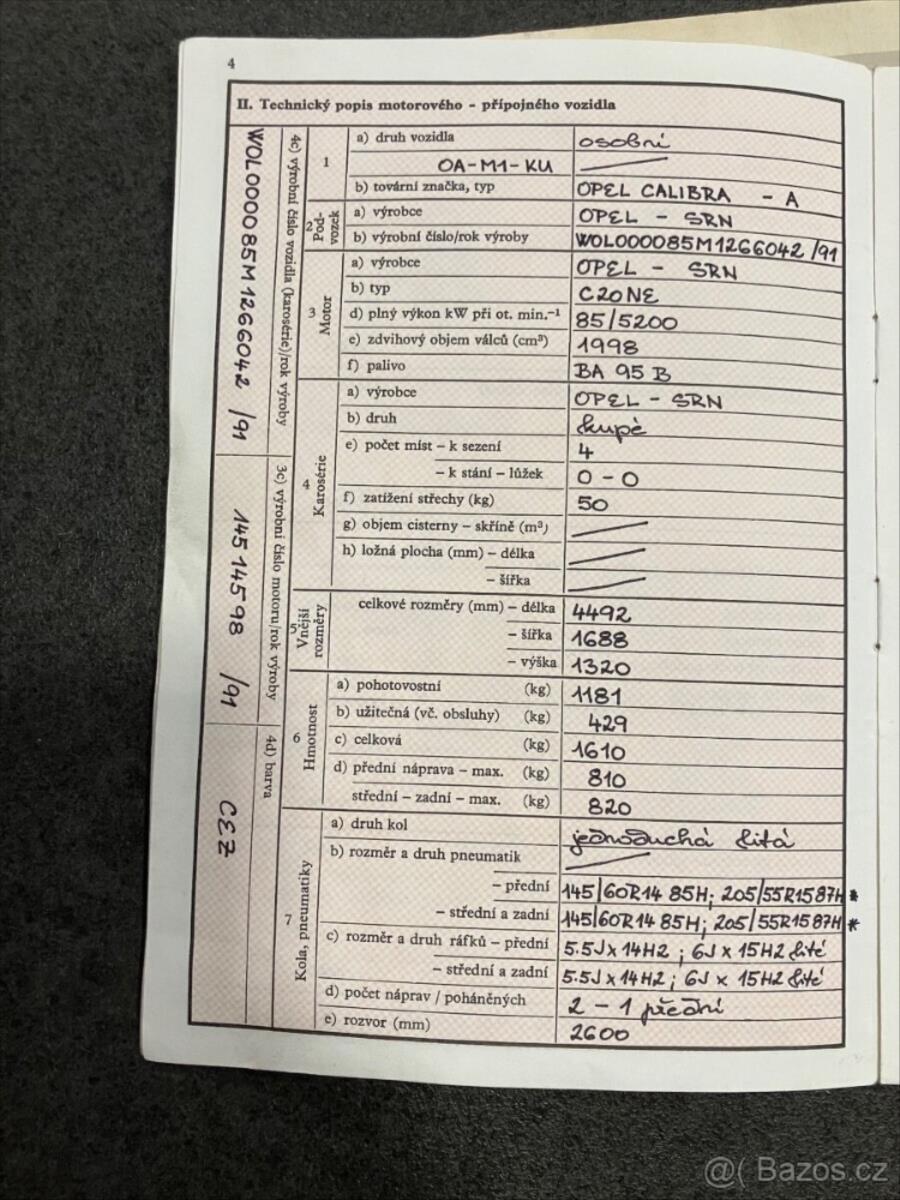 4
II. Technický popis motorového - přípojného vozidla
4c) výrobní číslo vozidla (karosérie)/rok výroby
WOL000085M1266042 /91
3c) výrobní číslo motoru/rok výroby
14514598 /91
4d) barva
CEZ
1
a) druh vozidla osobní
OA-M1-KU
b) tovární značka, typ OPEL CALIBRA - A
2 Pod-
vozek
a) výrobce OPEL - SRN
b) výrobní číslo/rok výroby WOL000085M1266042/91
3 Motor
a) výrobce OPEL - SRN
b) typ C20NE
d) plný výkon kW při ot. min.⁻¹ 85/5200
e) zdvihový objem válců (cm³) 1998
f) palivo BA 95 B
4 Karosérie
a) výrobce OPEL - SRN
b) druh kupé
e) počet míst – k sezení 4
– k stání – lůžek 0 - 0
f) zatížení střechy (kg) 50
g) objem cisterny – skříně (m³)
h) ložná plocha (mm) – délka
– šířka
5 Vnější
rozměry
celkové rozměry (mm) – délka 4492
– šířka 1688
– výška 1320
6 Hmotnost
a) pohotovostní (kg) 1181
b) užitečná (vč. obsluhy) (kg) 429
c) celková (kg) 1610
d) přední náprava – max. (kg) 810
střední – zadní – max. (kg) 820
7 Kola, pneumatiky
a) druh kol jednoduchá litá
b) rozměr a druh pneumatik
– přední 145/60R14 85H; 205/55R15 87H*
– střední a zadní 145/60R14 85H; 205/55R15 87H*
c) rozměr a druh ráfků – přední 5.5J x 14H2 ; 6J x 15H2 lité
– střední a zadní 5.5J x 14H2 ; 6J x 15H2 lité
d) počet náprav / poháněných 2 - 1 přední
e) rozvor (mm) 2600
@( Bazos.cz